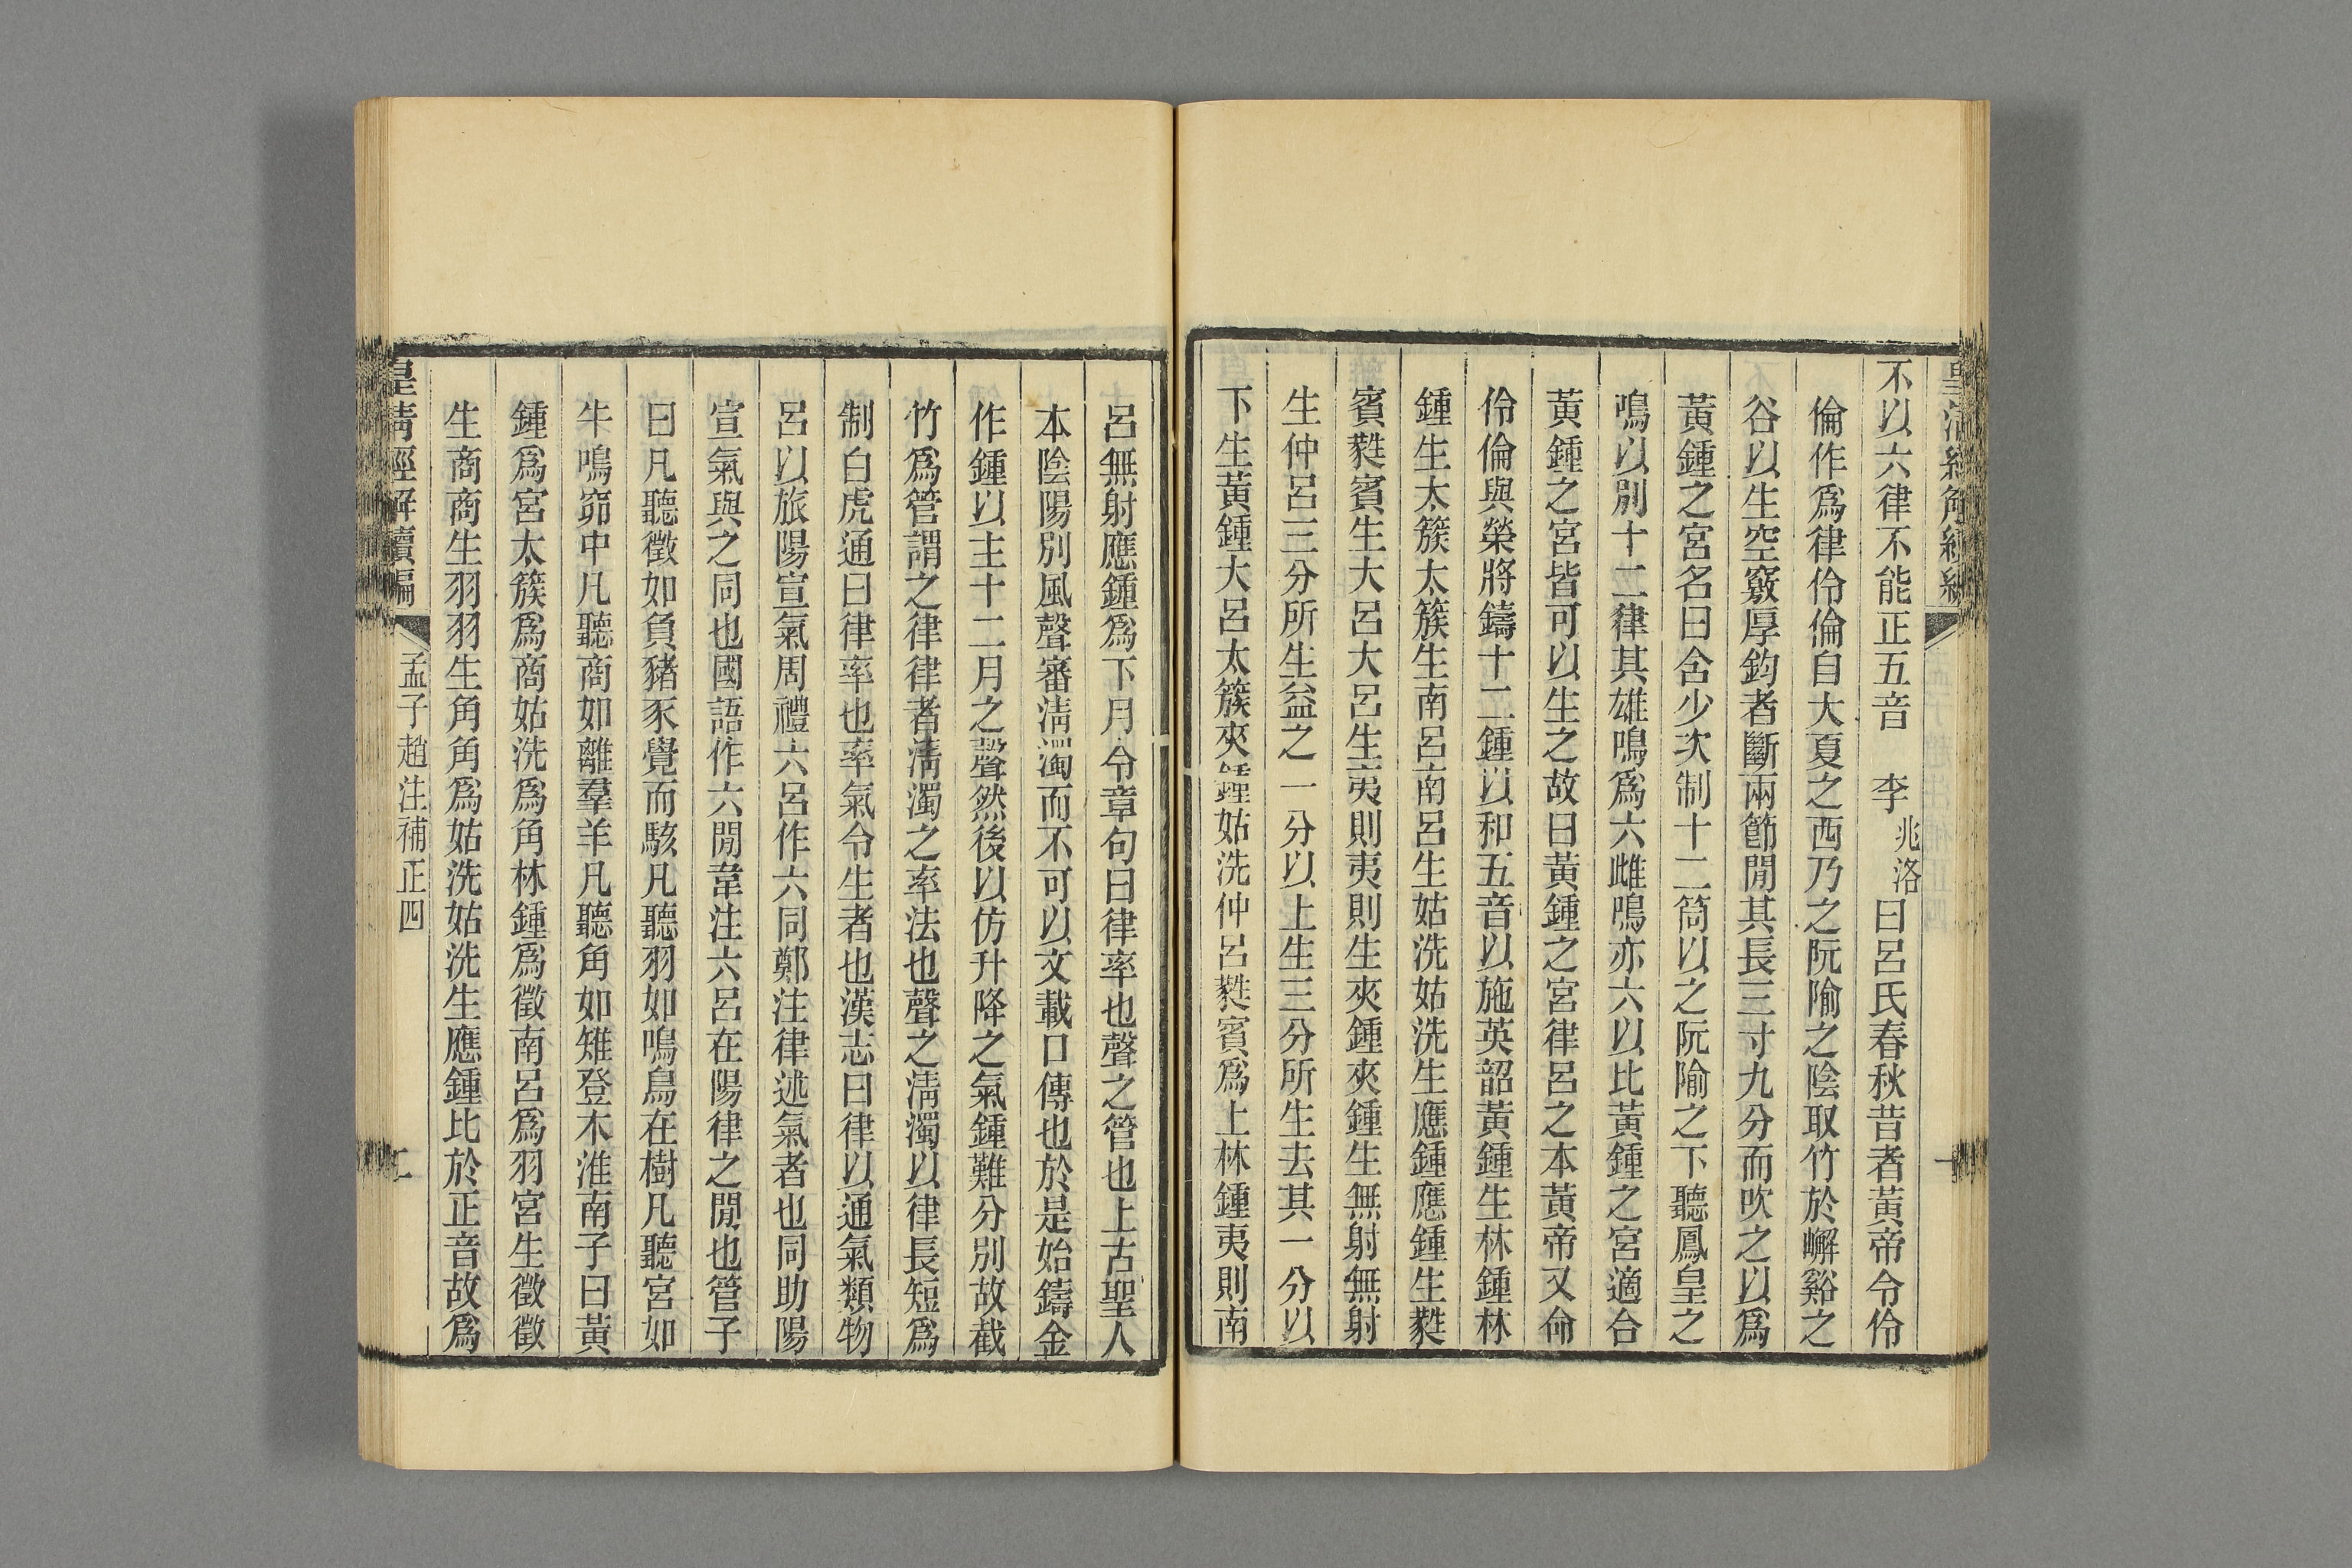 不以六律不能正五音 李兆洛曰呂氏春秋昔者黃帝令伶
倫作爲律伶倫自大夏之西乃之阮隃之陰取竹於嶰谿之
谷以生空竅厚鈞者斷兩節閒其長三寸九分而吹之以爲
黃鍾之宮名曰含少次制十二筒以之阮隃之下聽鳳皇之
鳴以別十二律其雄鳴爲六雌鳴亦六以比黃鍾之宮適合
黃鍾之宮皆可以生之故曰黃鍾之宮律呂之本黃帝又命
伶倫與榮將鑄十二鍾以和五音以施英韶黃鍾生林鍾林
鍾生太簇太簇生南呂南呂生姑洗姑洗生應鍾應鍾生蕤
賓蕤賓生大呂大呂生夷則夷則生夾鍾夾鍾生無射無射
生仲呂三分所生益之一分以上生三分所生去其一分以
下生黃鍾大呂太簇夾鍾姑洗仲呂蕤賓爲上林鍾夷則南
呂無射應鍾爲下月令章句曰律率也聲之管也上古聖人
本陰陽別風聲審淸濁而不可以文載口傳也於是始鑄金
作鍾以主十二月之聲然後以仿升降之氣鍾難分別故截
竹爲管謂之律律者淸濁之率法也聲之淸濁以律長短爲
制白虎通曰律率也率氣令生者也漢志曰律以通氣類物
呂以旅陽宣氣周禮六呂作六同鄭注律述氣者也同助陽
宣氣與之同也國語作六閒韋注六呂在陽律之閒也管子
曰凡聽徵如負豬豕覺而駭凡聽羽如鳴鳥在樹凡聽宮如
牛鳴窌中凡聽商如離羣羊凡聽角如雉登木淮南子曰黃
鍾爲宮太簇爲商姑洗爲角林鍾爲徵南呂爲羽宮生徵徵
生商商生羽羽生角角爲姑洗姑洗生應鍾比於正音故爲
皇淸經解續編 孟子趙注補正四 二